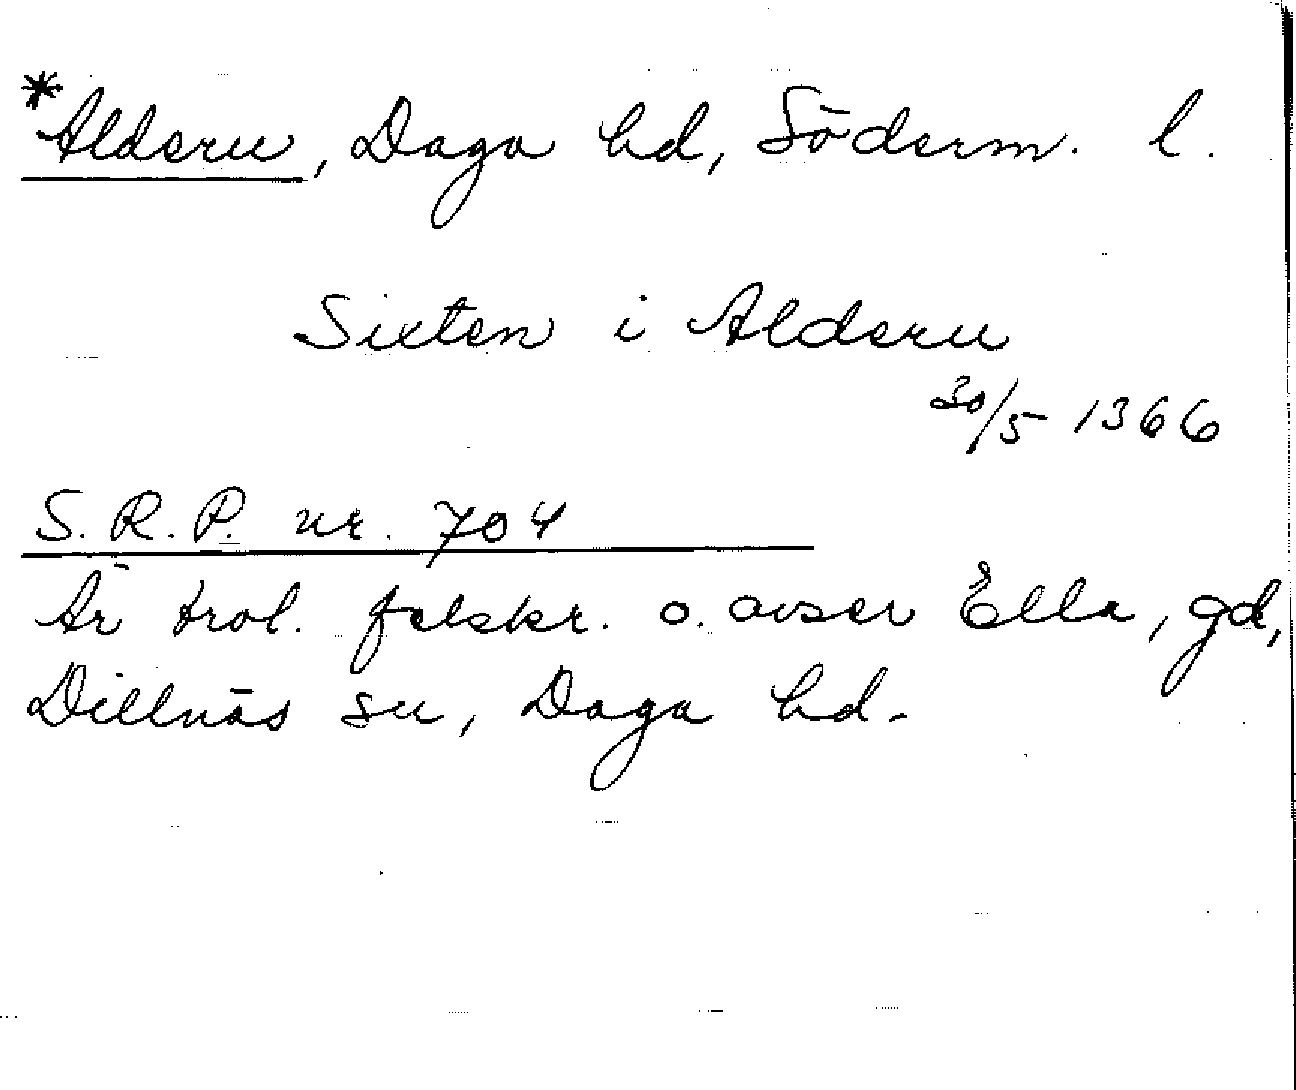 *Alderu, Daga hd, Söderm. l.
Sixten i Alderu
30/5 1366
S.R.P. nr. 704
Är trol. felskr. o. avser Ella, gd,
Dillnäs sn, Daga hd.